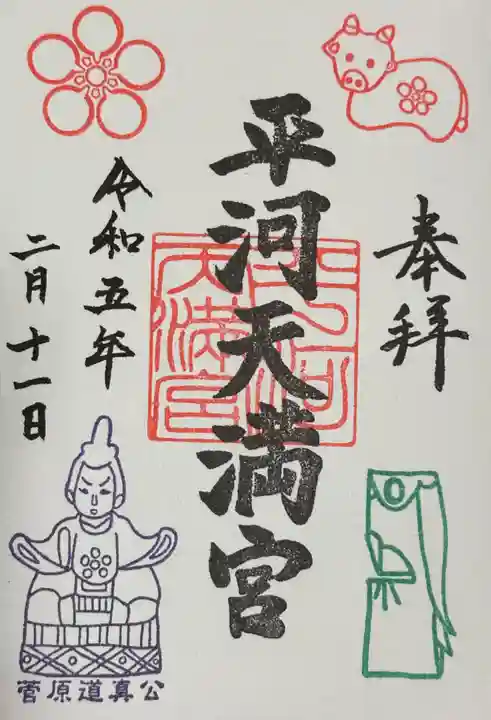 奉拝
平河天満宮
平河
天満宮
令和五年
二月十一日
菅原道真公